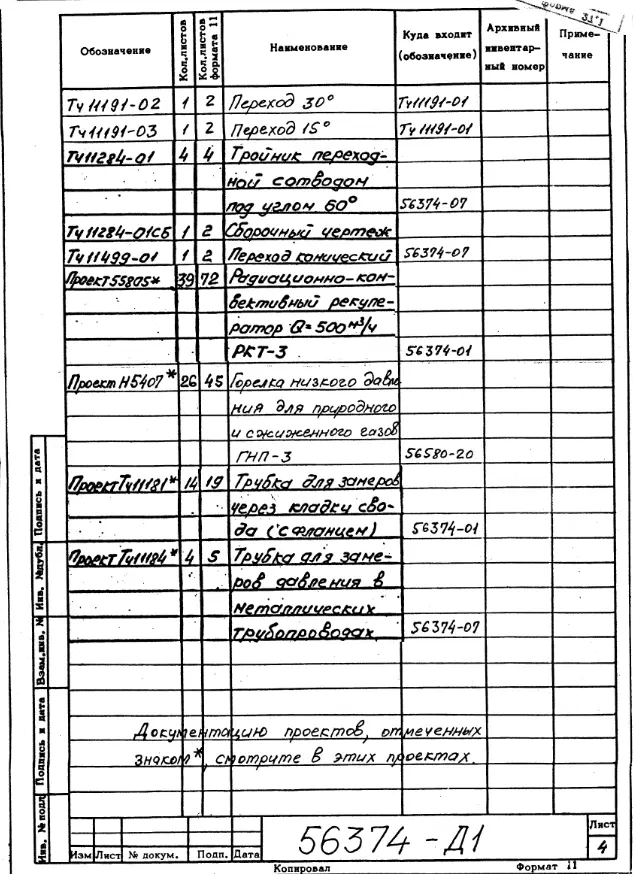 форма 31°1
Обозначение Кол.листов Кол.листов формата 11 Наименование Куда входит (обозначение) Архивный инвентар-ный номер Приме-чание
Ту 11191-02 1 2 Переход 30° Ту11191-01
Ту11191-03 1 2 Переход 15° Ту 11191-01
Ту11284-01 4 4 Тройник переход-
ной с отводом
под углом 60° 56374-07
Ту11284-01СБ 1 2 Сборочный чертеж
Ту11499-01 1 2 Переход конический 56374-07
Проект55805* 39 72 Радиационно-кон-
вективный рекупе-
ратор Q=500м³/ч
РКТ-3 56374-01
Проект Н5407* 26 45 Горелка низкого давле
ния для природного
и сжиженного газов
ГНП-3 56580-20
ПроектТу11181* 14 19 Трубка для замеров
через кладку сво-
да (с фланцем) 56374-01
ПроектТу11184* 4 5 Трубка для заме-
ров давления в
металлических
трубопроводах 56374-07
Документацию проектов, отмеченных
знаком*, смотрите в этих проектах.
Инв. № подл Подпись и дата Взам.инв. № Инв. №дубл. Подпись и дата
56374-Д1
Лист
4
Изм Лист № докум. Подп. Дата
Копировал Формат 11